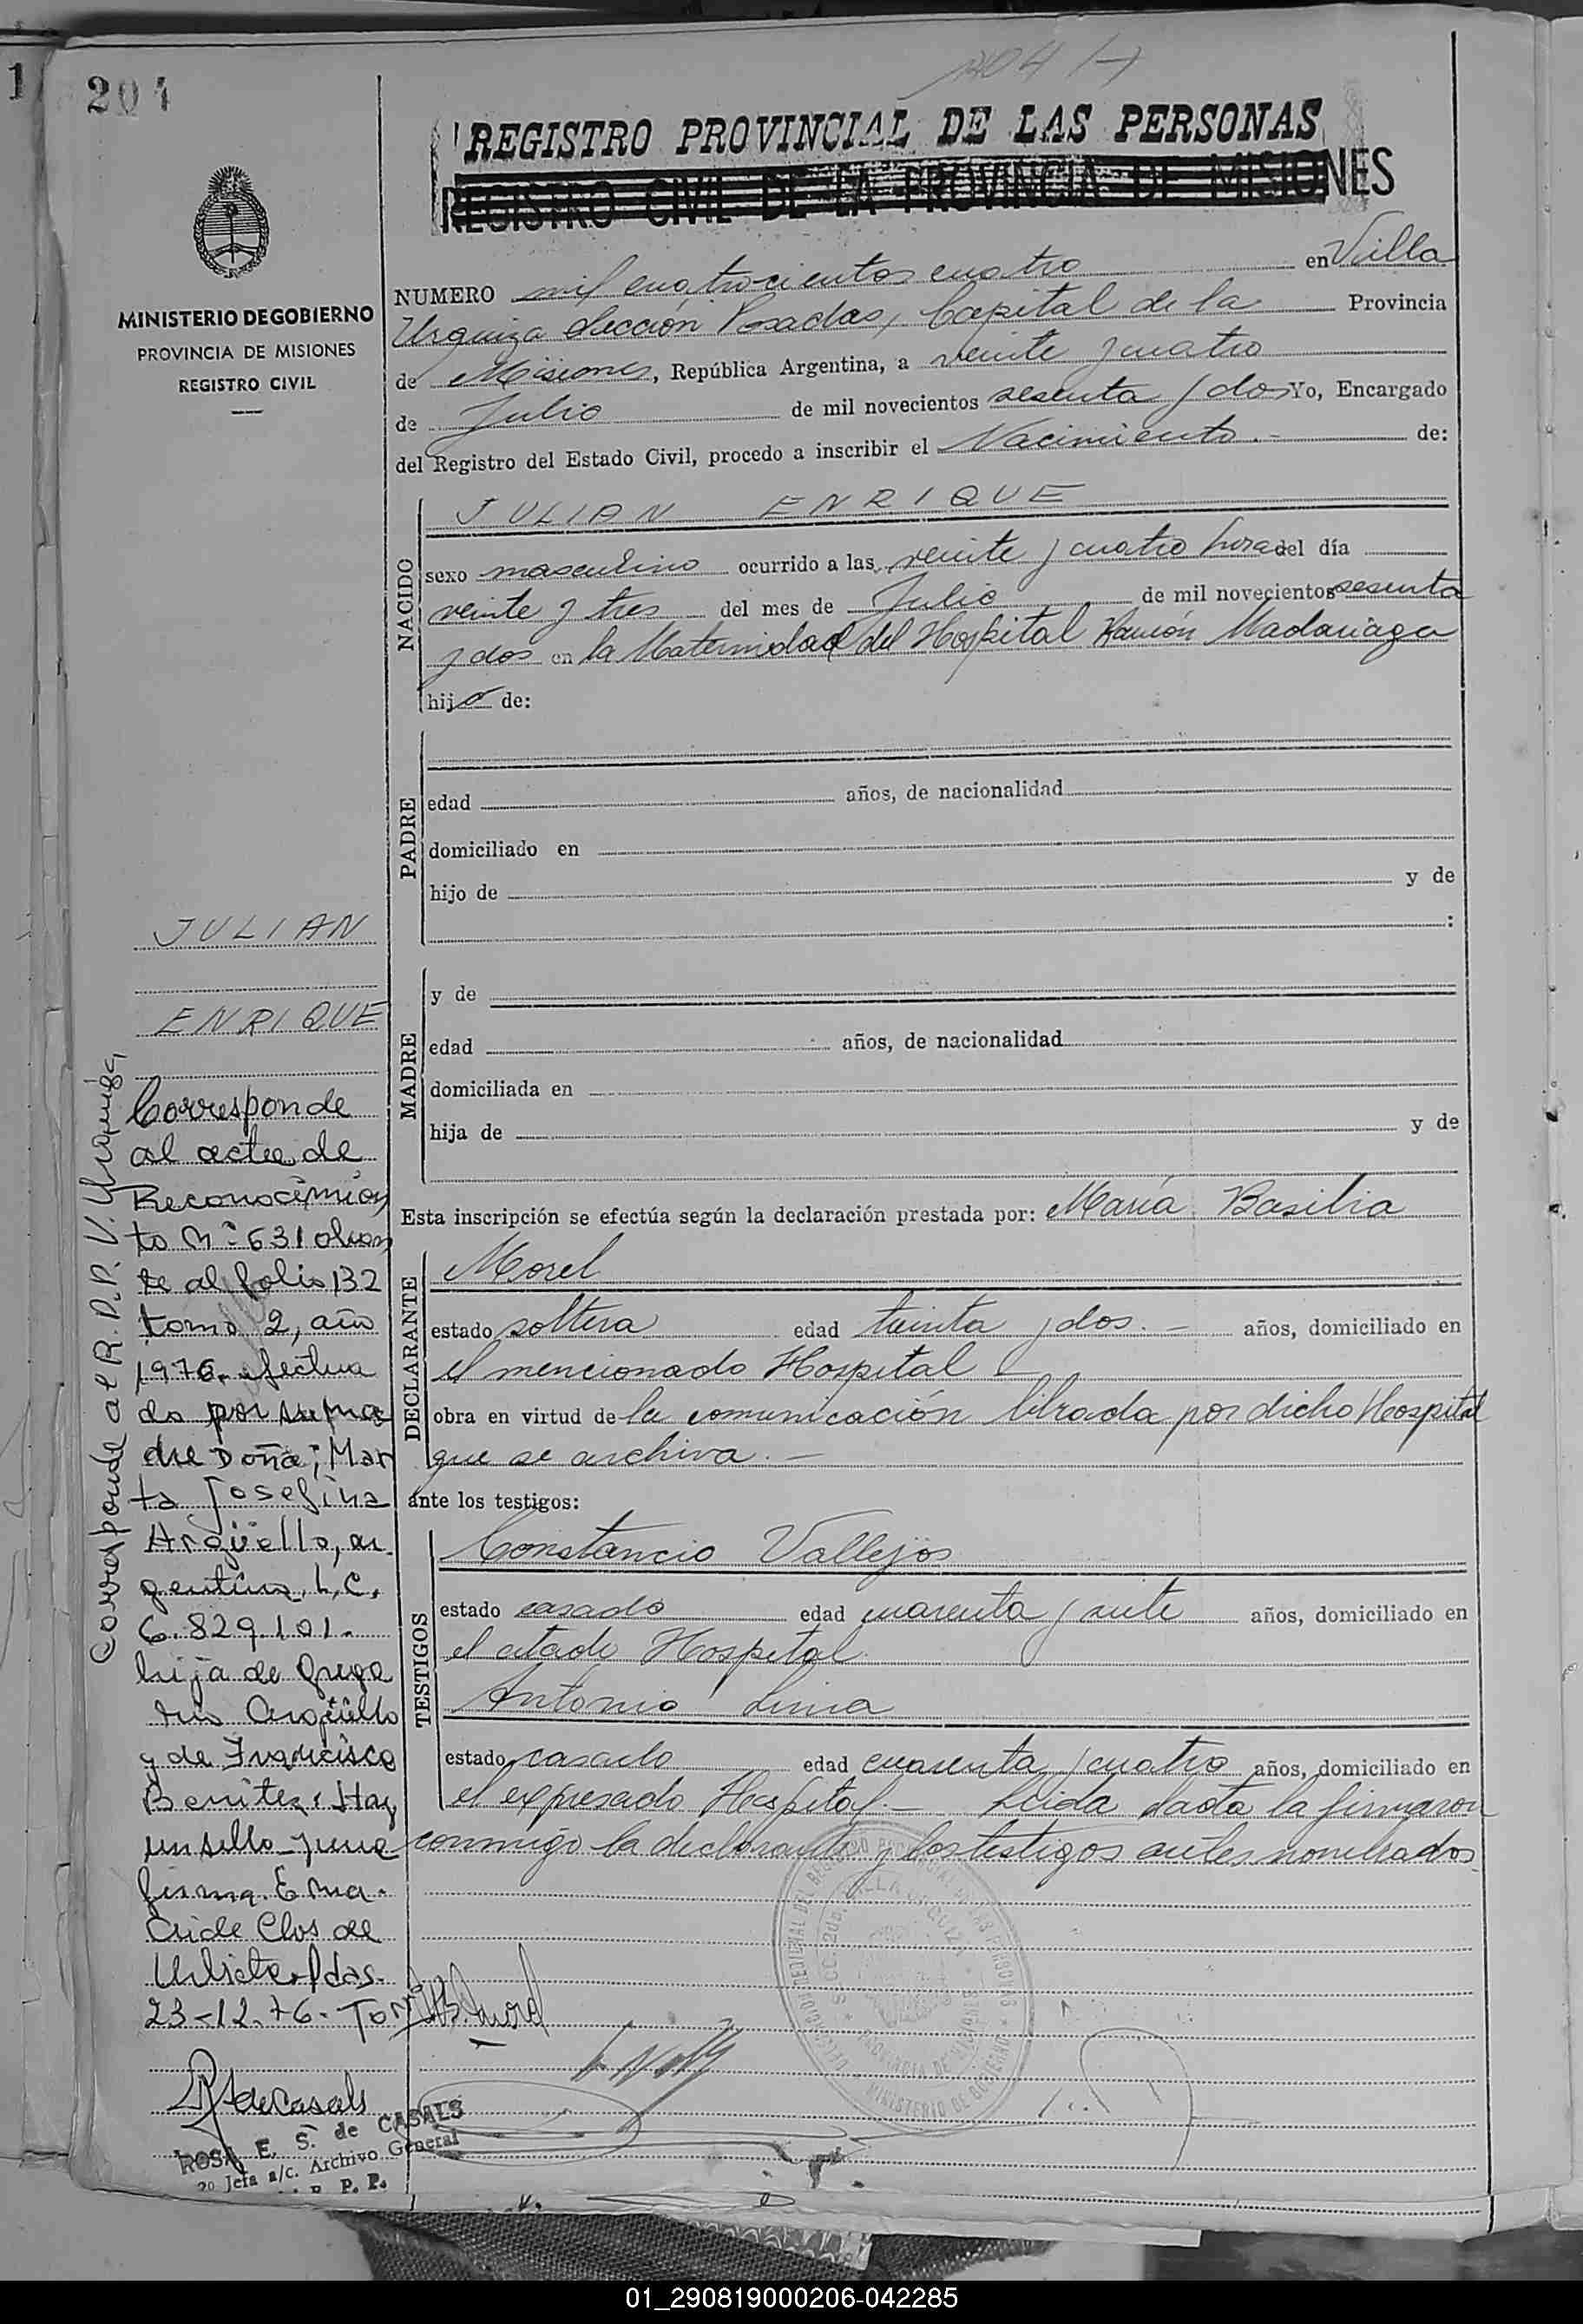 1
204
1404 H
REGISTRO PROVINCIAL DE LAS PERSONAS
REGISTRO CIVIL DE LA PROVINCIA DE MISIONES
MINISTERIO DE GOBIERNO
PROVINCIA DE MISIONES
REGISTRO CIVIL
NUMERO mil cuatrocientos cuatro en Villa
Urquiza Sección Posadas, Capital de la Provincia
de Misiones, República Argentina, a veinte y cuatro
de Julio de mil novecientos sesenta y dos Yo, Encargado
del Registro del Estado Civil, procedo a inscribir el Nacimiento.- de:
NACIDO
JULIAN ENRIQUE
sexo masculino ocurrido a las veinte y cuatro hora del día
veinte y tres del mes de Julio de mil novecientos sesenta
y dos en la Maternidad del Hospital Ramón Madariaga
hijo de:
PADRE
edad años, de nacionalidad
domiciliado en
hijo de y de
:
MADRE
y de
edad años, de nacionalidad
domiciliada en
hija de y de
Esta inscripción se efectúa según la declaración prestada por: María Basilia
DECLARANTE
Morel
estado soltera edad treinta y dos.- años, domiciliado en
el mencionado Hospital
obra en virtud de la comunicación librada por dicho Hospital
que se archiva.-
ante los testigos:
TESTIGOS
Constancio Vallejos
estado casado edad cuarenta y años, domiciliado en
el citado Hospital
Antonio
estado casado edad cuarenta y cuatro años, domiciliado en
el expresado Hospital.- Leida el acta la firmaron
conmigo la declarante y los testigos antes nombrados
JULIAN
ENRIQUE
Corresponde
al acta de
Reconocimien
to Nº 631 obran
te al folio 132
tomo 2, año
1976. efectua
do por su ma
dre Doña; Mar
ta Josefina
Argüello, ar
gentina, L.C.
6.829.101.
hija de Grego
rio Argüello
y de Francisca
Benitez. Hay
un sello y una
firma. Ema.
Cride Clos de
Pdas.
23-12-76.
Corresponde al R.P.P. V. Urquiza,
R S de Casals
ROSA E. S. de CASALS
2º Jefa a/c. Archivo General
R. P. P.
M B. Morel
DELEGACION REGIONAL DEL REGISTRO PROVINCIAL DE LAS PERSONAS
SECC. 2da. VILLA URQUIZA
PROVINCIA DE MISIONES
MINISTERIO DE GOBIERNO
01_290819000206-042285